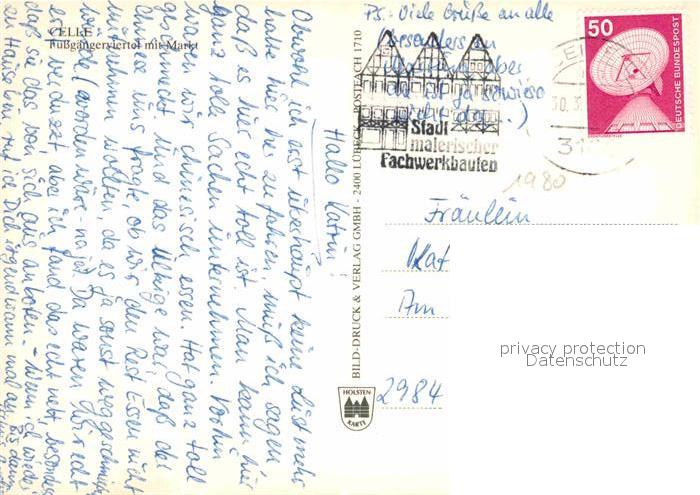 CELLE
Fußgängerviertel mit Markt
Hallo Katrin!
Obwohl ich erst überhaupt keine Lust mehr
hatte hier her zu fahren, muß ich sagen
daß es hier echt toll ist. Man kann hier
ganz toll Sachen unternehmen. Vorhin
waren wir chinesisch essen. Hat ganz toll
geschmeckt und das Ulkige war, daß der
Chinese uns fragte, ob wir den Rest Essen nicht
mitnehmen wollten, da es ja sonst weggeschmissen
worden wäre - na ja! Da waren wir echt
erst verdutzt, aber ich fand das echt nett, besonders
daß sie das von sich aus anboten. - Wenn ich wieder
zu Hause bin, ruf ich Dich irgendwann mal an
Bis dann
BILD-DRUCK & VERLAG GMBH - 2400 LÜBECK - POSTFACH 1710
HOLSTEN
KARTE
P.S.: Viele Grüße an alle
besonders an
aber
die ist ja sowieso
nicht da )
Stadt
malerischer
Fachwerkbauten
CELLE
30.3.
31
50
DEUTSCHE BUNDESPOST
1980
Fräulein
Kat
Am
2984
privacy protection
Datenschutz